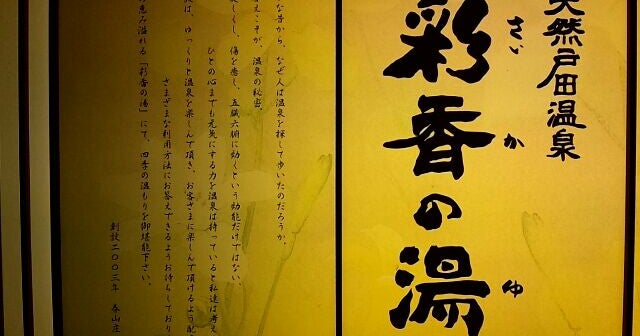 天然戸田温泉
彩香の湯
さいかゆ
な昔から、なぜ人は温泉を探して歩いたのだろうか。
答えこそが、温泉の秘密。
美しくし、傷を癒し、五臓六腑に効くという効能だけではない。
ひとの心までも元気にする力を温泉は持っていると私達は考え
は、ゆっくりと温泉を楽しんで頂き、お客さまに楽しんで頂けるよう配
さまざまな利用方法にお答えできるようお待ちしており
の恵み溢れる「彩香の湯」にて、四季の温もりを御堪能下さい。
創設二〇〇三年 春山庄